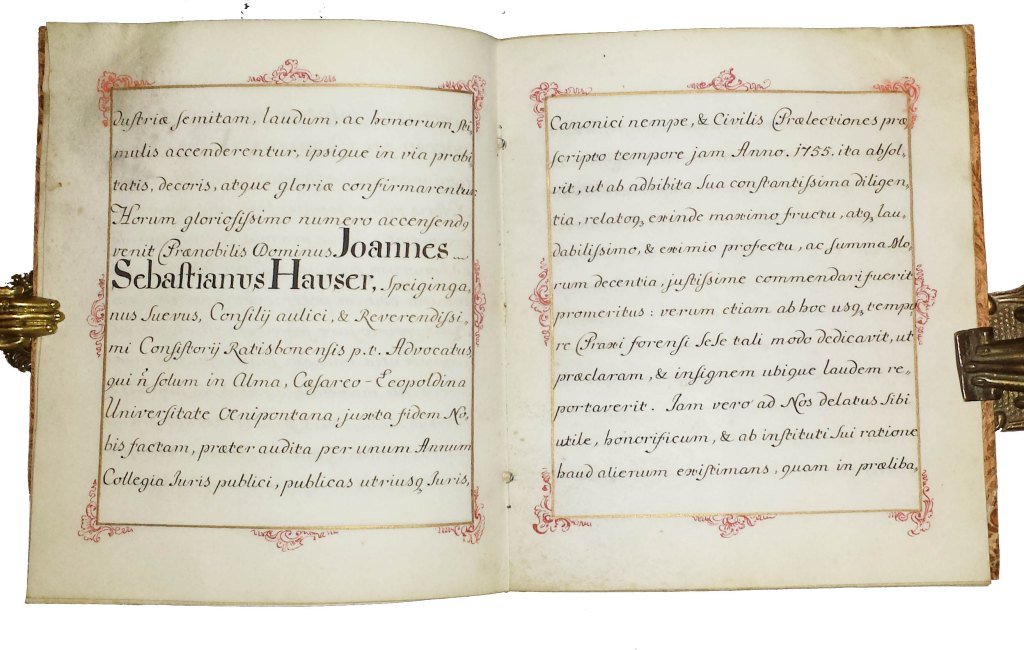 dustriæ semitam, laudum, ac honorum sti
mulis accenderentur, ipsique in via probi
tatis, decoris, atque gloriæ confirmarentur.
Horum gloriosissimo numero accensendꝰ
venit Prænobilis Dominus Joannes
Sebastianus Hauser, Speiginga,
nus Suevus, Consilij aulici, & Reverendissi,
mi Consistorij Ratisbonensis p.t. Advocatus
qui n̄ solum in Alma, Cæsareo-Leopoldina
Universitate Œnipontana, juxta fidem No,
bis factam, præter audita per unum Annum
Collegia Iuris publici, publicas utriusq̨ Iuris,
Canonici nempe, & Civilis Prælectiones præ
scripto tempore jam Anno. 1755. ita absol,
vit, ut ab adhibita sua constantissima diligen,
tia, relatoq̨ exinde maximo fructu, atq̨ lau,
dabilissimo, & eximio profectu, ac summa Mo,
rum decentia, justissime commendari fuerit
promeritus: verum etiam ab hoc usq̨ tempo
re Praxi forensi sese tali modo dedicavit, ut
præclaram, & insignem ubique laudem re,
portaverit. Iam vero ad Nos delatus sibi
utile, honorificum, & ab instituti sui ratione
haud alienum existimans, quam in præliba,